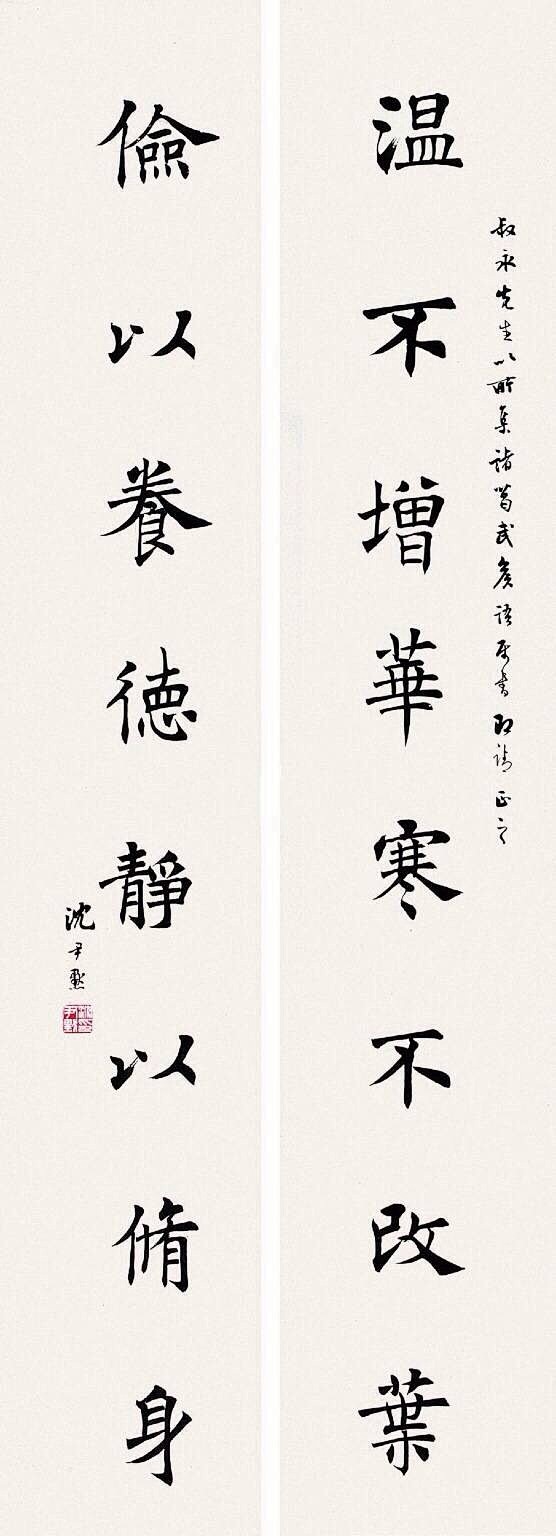 叔永先生以所集諸葛武侯語属書即請正之
温不增華寒不改葉
儉以養德靜以脩身
沈尹默